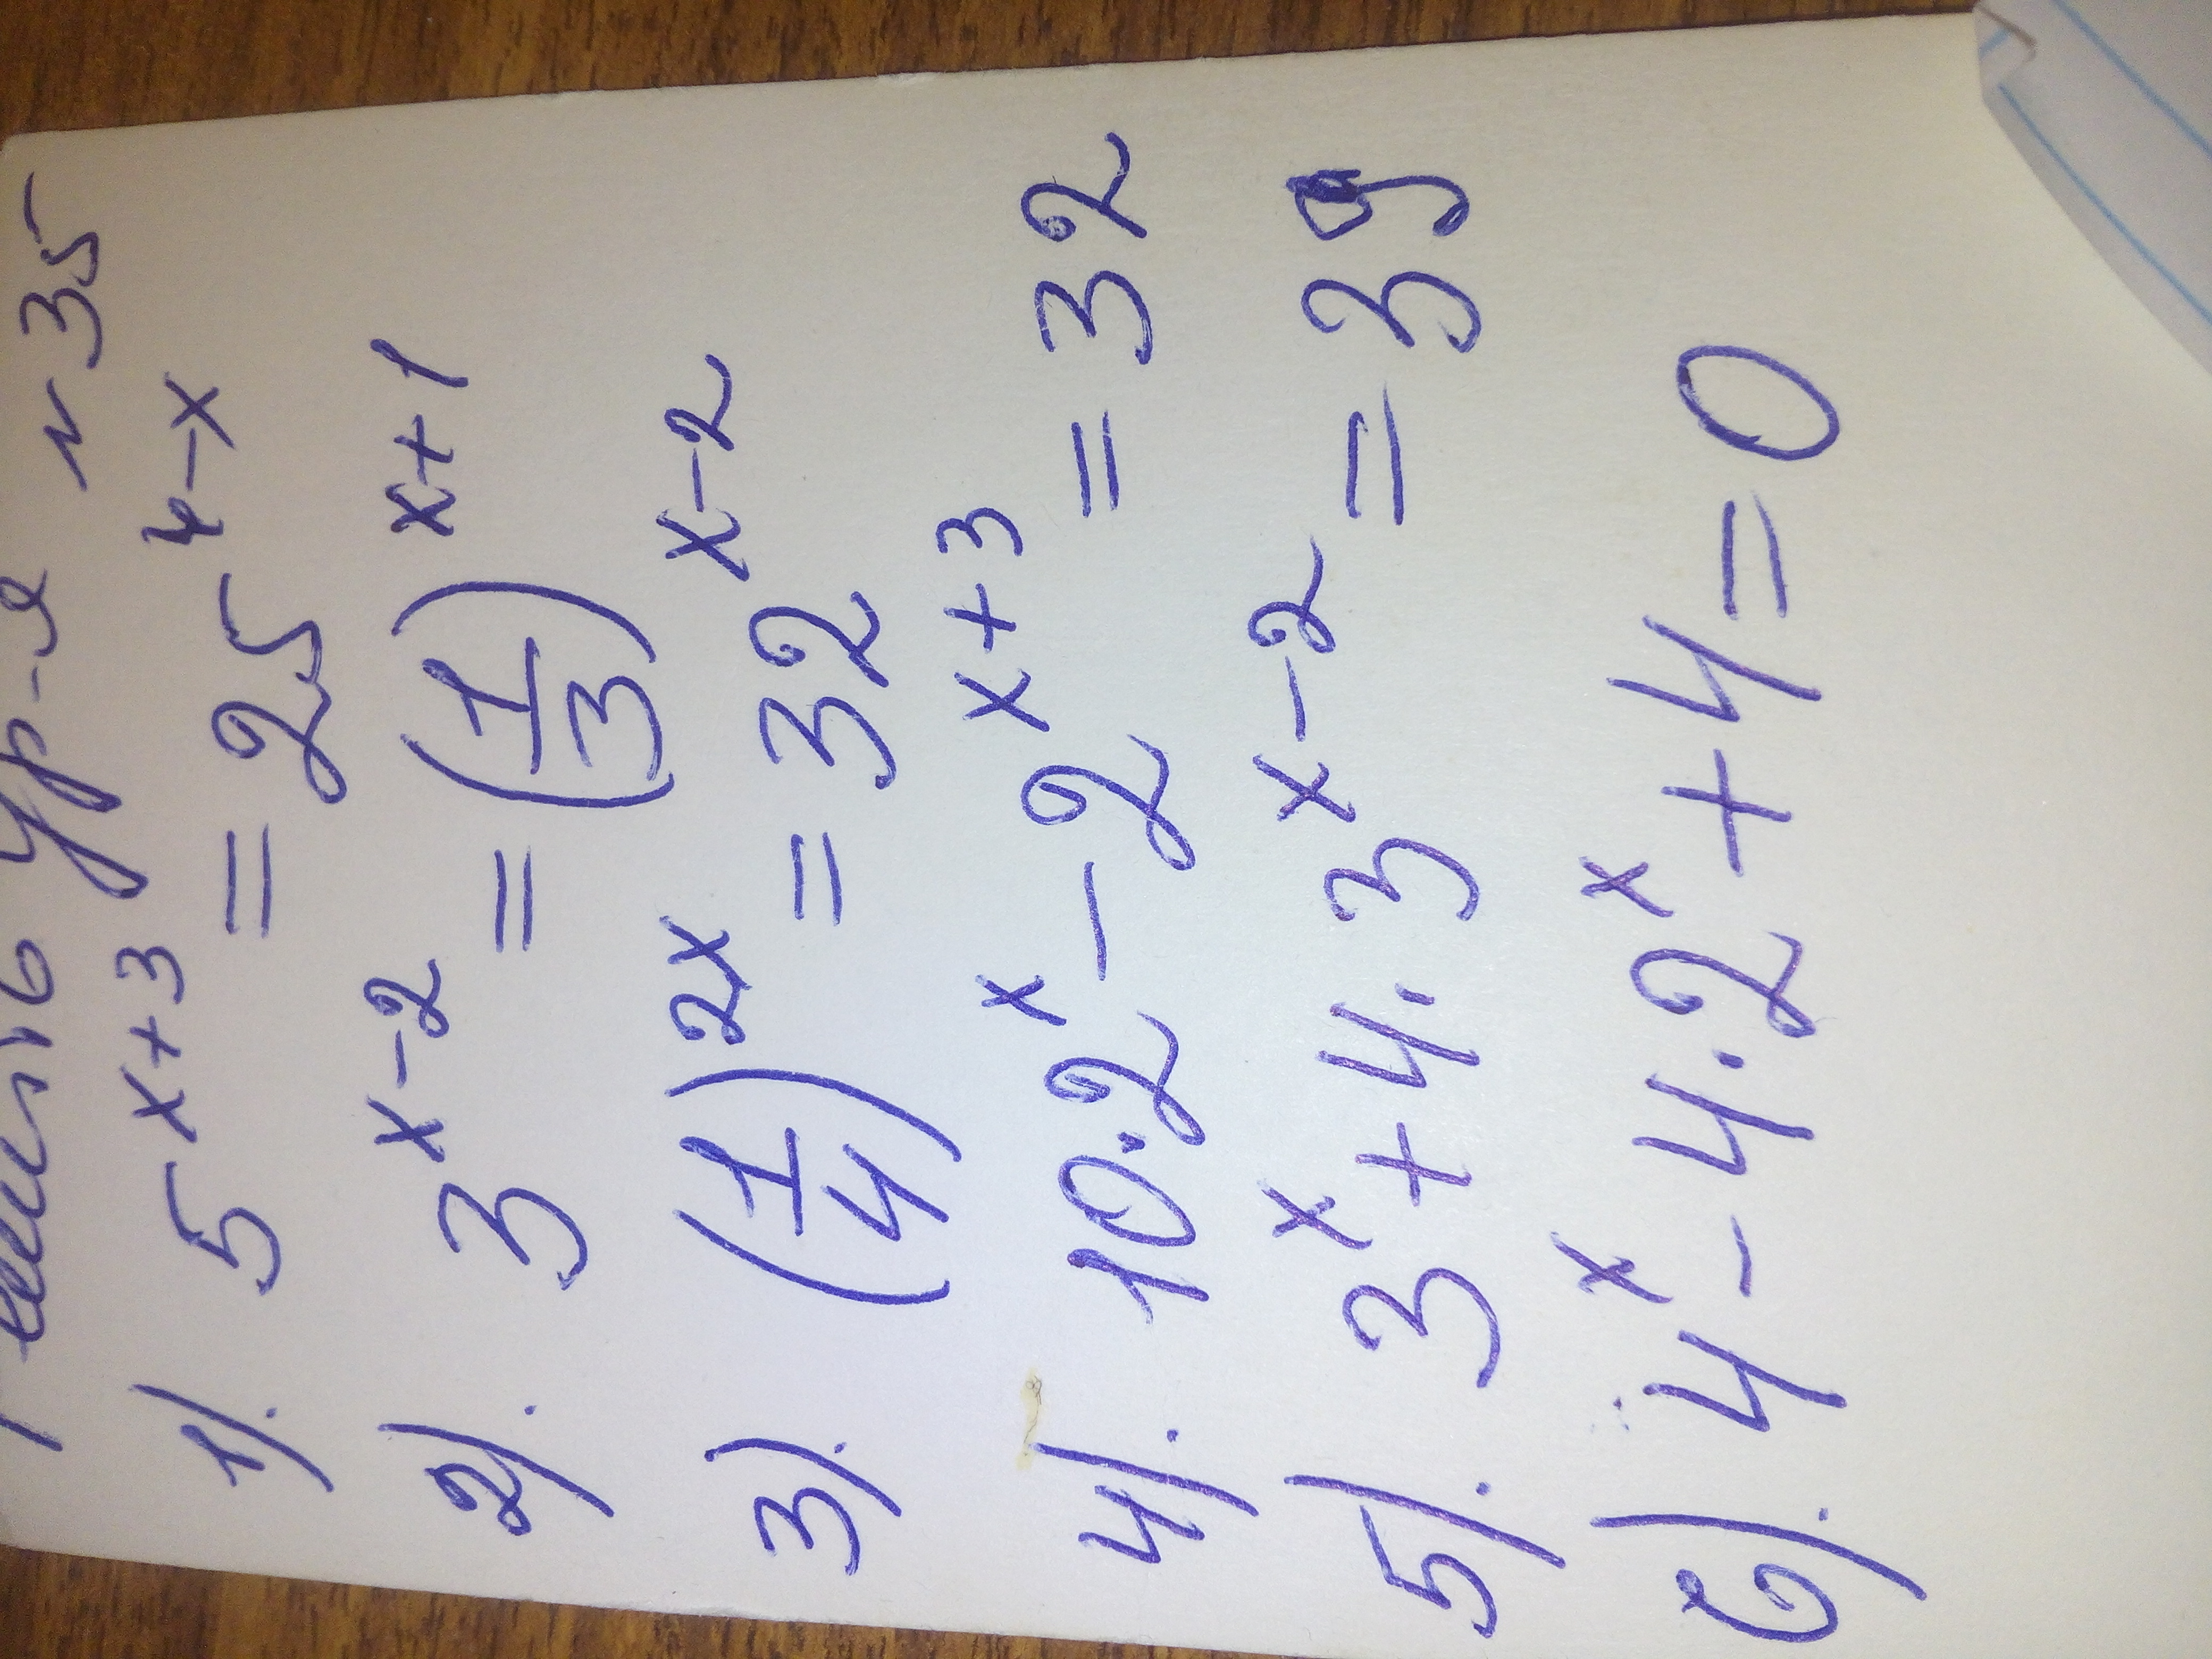 ур-я N 35
1). 5^(x+3) = 25^(4-x)
2). 3^(x-2) = (1/3)^(x+1)
3). (1/4)^(2x) = 32^(x-2)
4). 10·2^x - 2^(x+3) = 32
5). 3^x + 4·3^(x-2) = 39
6). 4^x - 4·2^x + 4 = 0